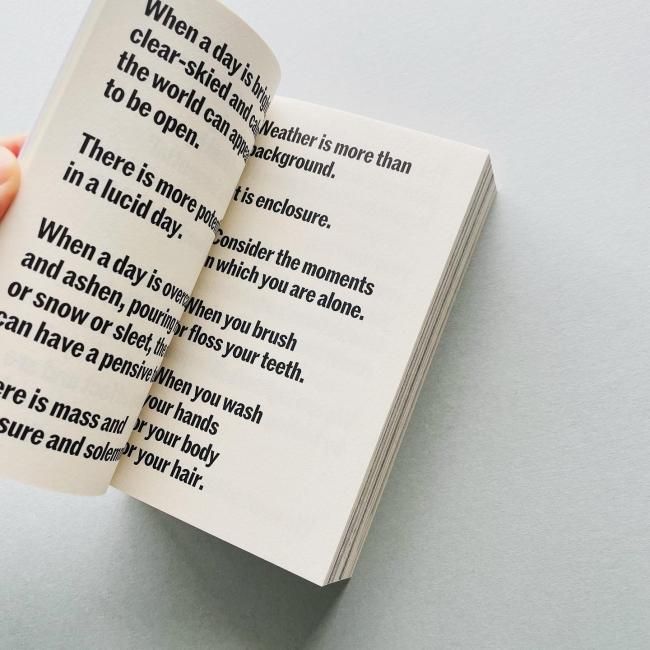 When a day is
clear-skied and
the world can
to be open.
There is more
in a lucid day.
When a day is
and ashen, pouring
or snow or sleet,
can have a pensive
is mass and
and
Weather is more than
background.
is enclosure.
Consider the moments
in which you are alone.
When you brush
or floss your teeth.
When you wash
your hands
or your body
or your hair.